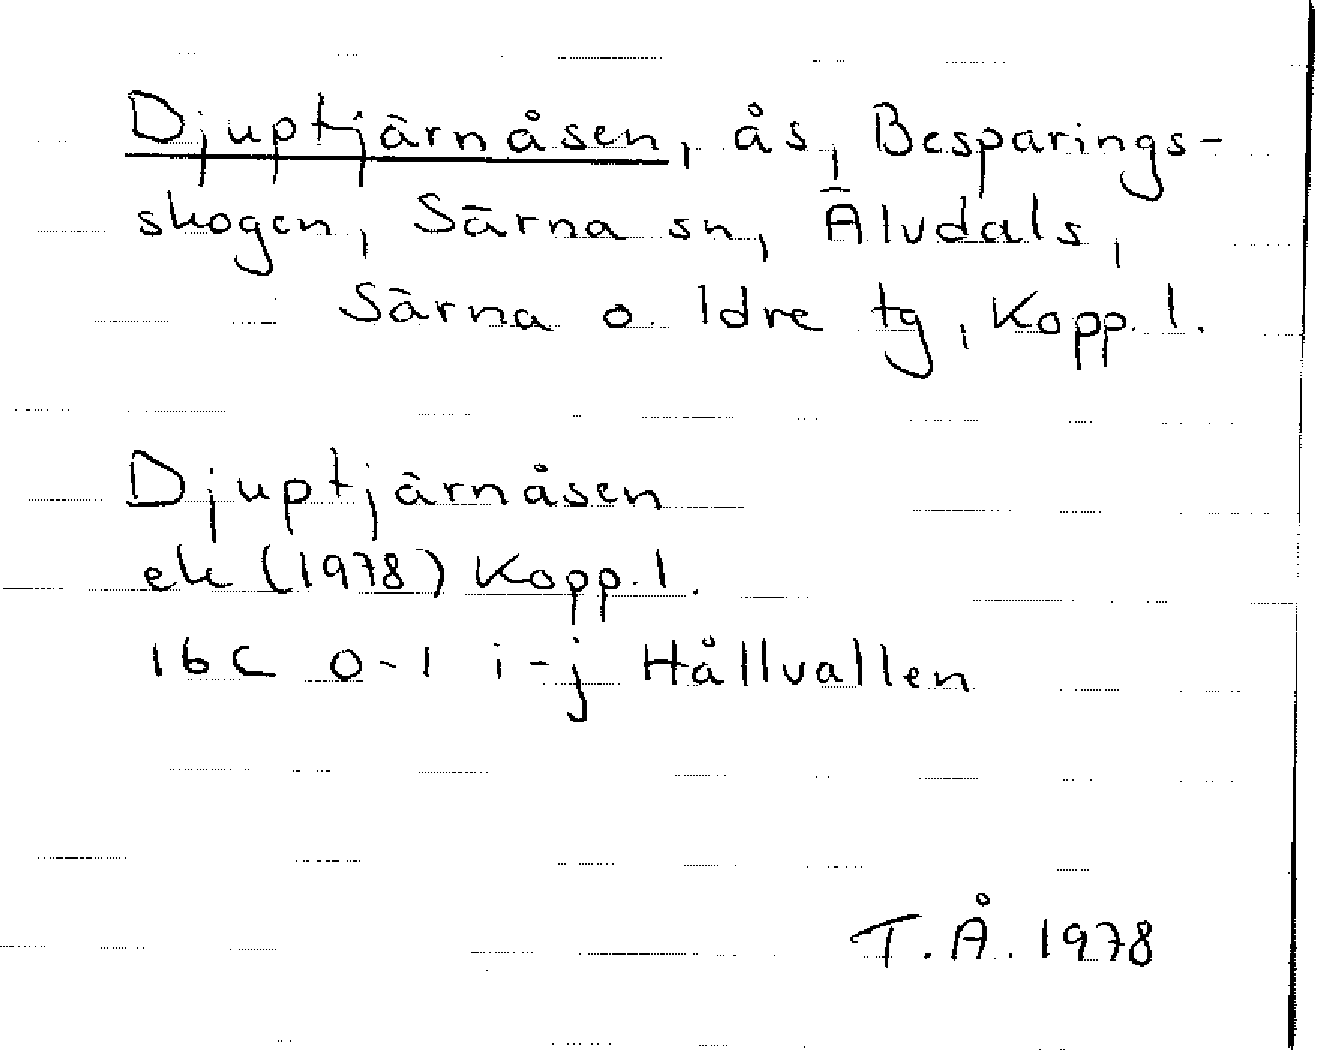 Djuptjärnåsen, ås, Besparings-
skogen, Särna sn, Älvdals,
Särna o. Idre tg, Kopp. l.
Djuptjärnåsen
ek (1978) Kopp. l.
16C 0-1 i-j Hållvallen
T.Å. 1978